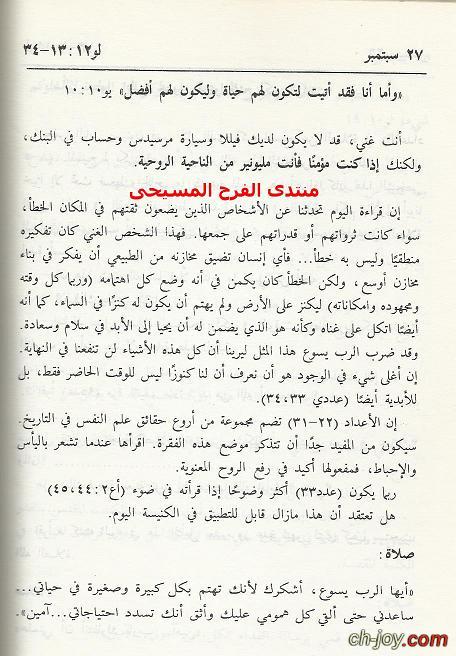 ٢٧ سبتمبر لو١٢:١٣-٣٤
«وأما أنا فقد أتيت لتكون لهم حياة وليكون لهم أفضل» يو١٠:١٠
أنت غني، قد لا يكون لديك فيللا وسيارة مرسيدس وحساب في البنك،
ولكنك إذا كنت مؤمنًا فأنت مليونير من الناحية الروحية.
منتدى الفرح المسيحى
إن قراءة اليوم تحدثنا عن الأشخاص الذين يضعون ثقتهم في المكان الخطأ،
سواء كانت ثرواتهم أو قدراتهم على جمعها. فهذا الشخص الغني كان تفكيره
منطقيًا وليس به خطأ... فأي إنسان تضيق مخازنه من الطبيعي أن يفكر في بناء
مخازن أوسع، ولكن الخطأ كان يكمن في أنه وضع كل اهتمامه (وربما كل وقته
ومجهوده وامكاناته) ليكنز على الأرض ولم يهتم أن يكون له كنزًا في السماء، كما أنه
أيضًا اتكل على غناه وكأنه هو الذي يضمن له أن يحيا إلى الأبد في سلام وسعادة.
وقد ضرب الرب يسوع هذا المثل ليرينا أن كل هذه الأشياء لن تنفعنا في النهاية.
إن أغلى شيء في الوجود هو أن نعرف أن لنا كنوزًا ليس للوقت الحاضر فقط، بل
للأبدية أيضًا (عددي ٣٣، ٣٤).
إن الأعداد (٢٢-٣١) تضم مجموعة من أروع حقائق علم النفس في التاريخ.
سيكون من المفيد جدًا أن تتذكر موضع هذه الفقرة. اقرأها عندما تشعر باليأس
والإحباط، فمفعولها أكيد في رفع الروح المعنوية.
ربما يكون (عدد٣٣) أكثر وضوحًا إذا قرأته في ضوء (أع٢:٤٤، ٤٥)
هل تعتقد أن هذا مازال قابل للتطبيق في الكنيسة اليوم.
صلاة:
«أيها الرب يسوع، أشكرك لأنك تهتم بكل كبيرة وصغيرة في حياتي...
ساعدني حتى ألقي كل همومي عليك وأثق أنك تسدد احتياجاتي...آمين».
ch-joy.com